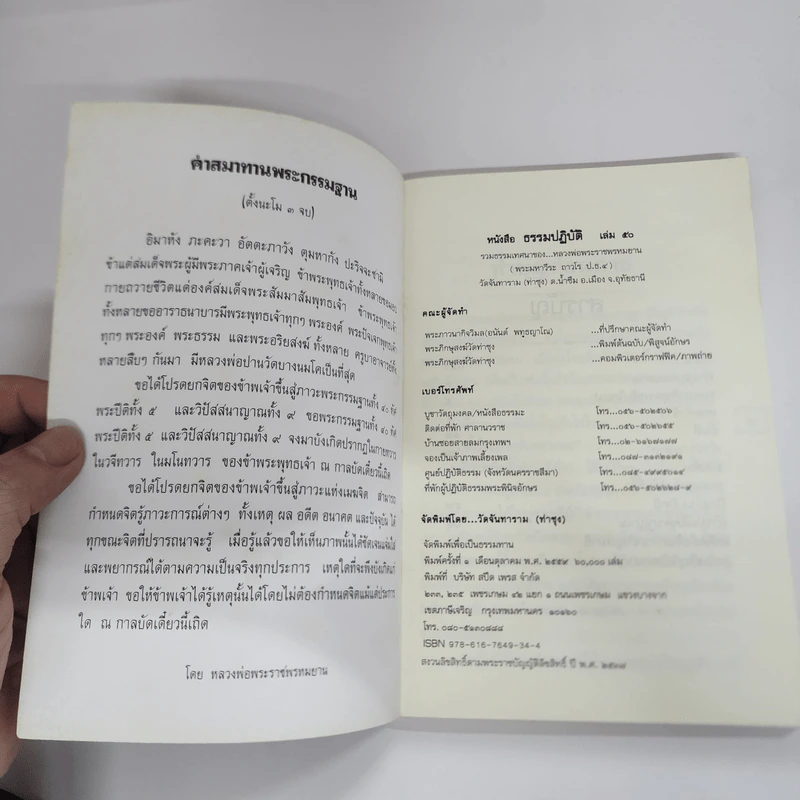 คำสมาทานพระกรรมฐาน
(ตั้งนะโม ๓ จบ)
อิมาหัง ภะคะวา อัตตะภาวัง ตุมหากัง ปะริจจะชามิ
ข้าแต่สมเด็จพระผู้มีพระภาคเจ้าผู้เจริญ ข้าพระพุทธเจ้าทั้งหลายขอมอบ
กายถวายชีวิตแด่องค์สมเด็จพระสัมมาสัมพุทธเจ้า ข้าพระพุทธเจ้า
ทั้งหลายขออาราธนาบารมีพระพุทธเจ้าทุกๆ พระองค์ พระปัจเจกพุทธเจ้า
ทุกๆ พระองค์ พระธรรม และพระอริยสงฆ์ ทั้งหลาย ครูบาอาจารย์ทั้ง
หลายสืบๆ กันมา มีหลวงพ่อปานวัดบางนมโคเป็นที่สุด
ขอได้โปรดยกจิตของข้าพเจ้าขึ้นสู่ภาวะพระกรรมฐานทั้ง ๔๐ ทัศ
พระปีติทั้ง ๕ และวิปัสสนาญาณทั้ง ๙ ขอพระกรรมฐานทั้ง ๔๐ ทัศ
พระปีติทั้ง ๕ และวิปัสสนาญาณทั้ง ๙ จงมาบังเกิดปรากฏในกายทวาร
ในวจีทวาร ในมโนทวาร ของข้าพระพุทธเจ้า ณ กาลบัดเดี๋ยวนี้เถิด
ขอได้โปรดยกจิตของข้าพเจ้าขึ้นสู่ภาวะแห่งเมฆจิต สามารถ
กำหนดจิตรู้ภาวะการณ์ต่างๆ ทั้งเหตุ ผล อดีต อนาคต และปัจจุบัน ได้
ทุกขณะจิตที่ปรารถนาจะรู้ เมื่อรู้แล้วขอให้เห็นภาพนั้นได้ชัดเจนแจ่มใส
และพยากรณ์ได้ตามความเป็นจริงทุกประการ เหตุใดที่จะพึงบังเกิดแก่
ข้าพเจ้า ขอให้ข้าพเจ้าได้รู้เหตุนั้นได้โดยไม่ต้องกำหนดจิตแม้แต่ประการ
ใด ณ กาลบัดเดี๋ยวนี้เถิด
โดย หลวงพ่อพระราชพรหมยาน
หนังสือ ธรรมปฏิบัติ เล่ม ๕๐
รวมธรรมเทศนาของ...หลวงพ่อพระราชพรหมยาน
(พระมหาวีระ ถาวโร ป.ธ.๔)
วัดจันทาราม (ท่าซุง) ต.น้ำซึม อ.เมือง จ.อุทัยธานี
คณะผู้จัดทำ
พระภาวนากิจวิมล(อนันต์ พทฺธญาโณ) ...ที่ปรึกษาคณะผู้จัดทำ
พระภิกษุสงฆ์วัดท่าซุง ...พิมพ์ต้นฉบับ/พิสูจน์อักษร
พระภิกษุสงฆ์วัดท่าซุง ...คอมพิวเตอร์กราฟฟิค/ภาพถ่าย
เบอร์โทรศัพท์
บูชาวัตถุมงคล/หนังสือธรรมะ โทร...๐๕๖-๕๐๒๕๐๖
ติดต่อที่พัก ศาลานวราช โทร...๐๕๖-๕๐๒๖๕๕
บ้านซอยสายลมกรุงเทพฯ โทร...๐๒-๖๑๖๗๑๗๗
จองเป็นเจ้าภาพเลี้ยงเพล โทร...๐๘๗-๓๑๓๒๑๙๑
ศูนย์ปฏิบัติธรรม (จังหวัดนครราชสีมา) โทร...๐๘๕-๔๙๙๕๐๑๔
ที่พักผู้ปฏิบัติธรรมพระพินิจอักษร โทร...๐๕๖-๕๐๒๖๒๘-๙
จัดพิมพ์โดย...วัดจันทาราม (ท่าซุง)
จัดพิมพ์เพื่อเป็นธรรมทาน
พิมพ์ครั้งที่ ๑ เดือนตุลาคม พ.ศ. ๒๕๕๙ ๖๐,๐๐๐ เล่ม
พิมพ์ที่ บริษัท สปีด เพรส จำกัด
๒๓๓, ๒๓๕ เพชรเกษม ๔๒ แยก ๑ ถนนเพชรเกษม แขวงบางจาก
เขตภาษีเจริญ กรุงเทพมหานคร ๑๐๑๖๐
โทร. ๐๘๐-๕๑๓๐๘๘๘
ISBN 978-616-7649-34-4
สงวนลิขสิทธิ์ตามพระราชบัญญัติลิขสิทธิ์ ปี พ.ศ. ๒๕๓๗
สารบัญ